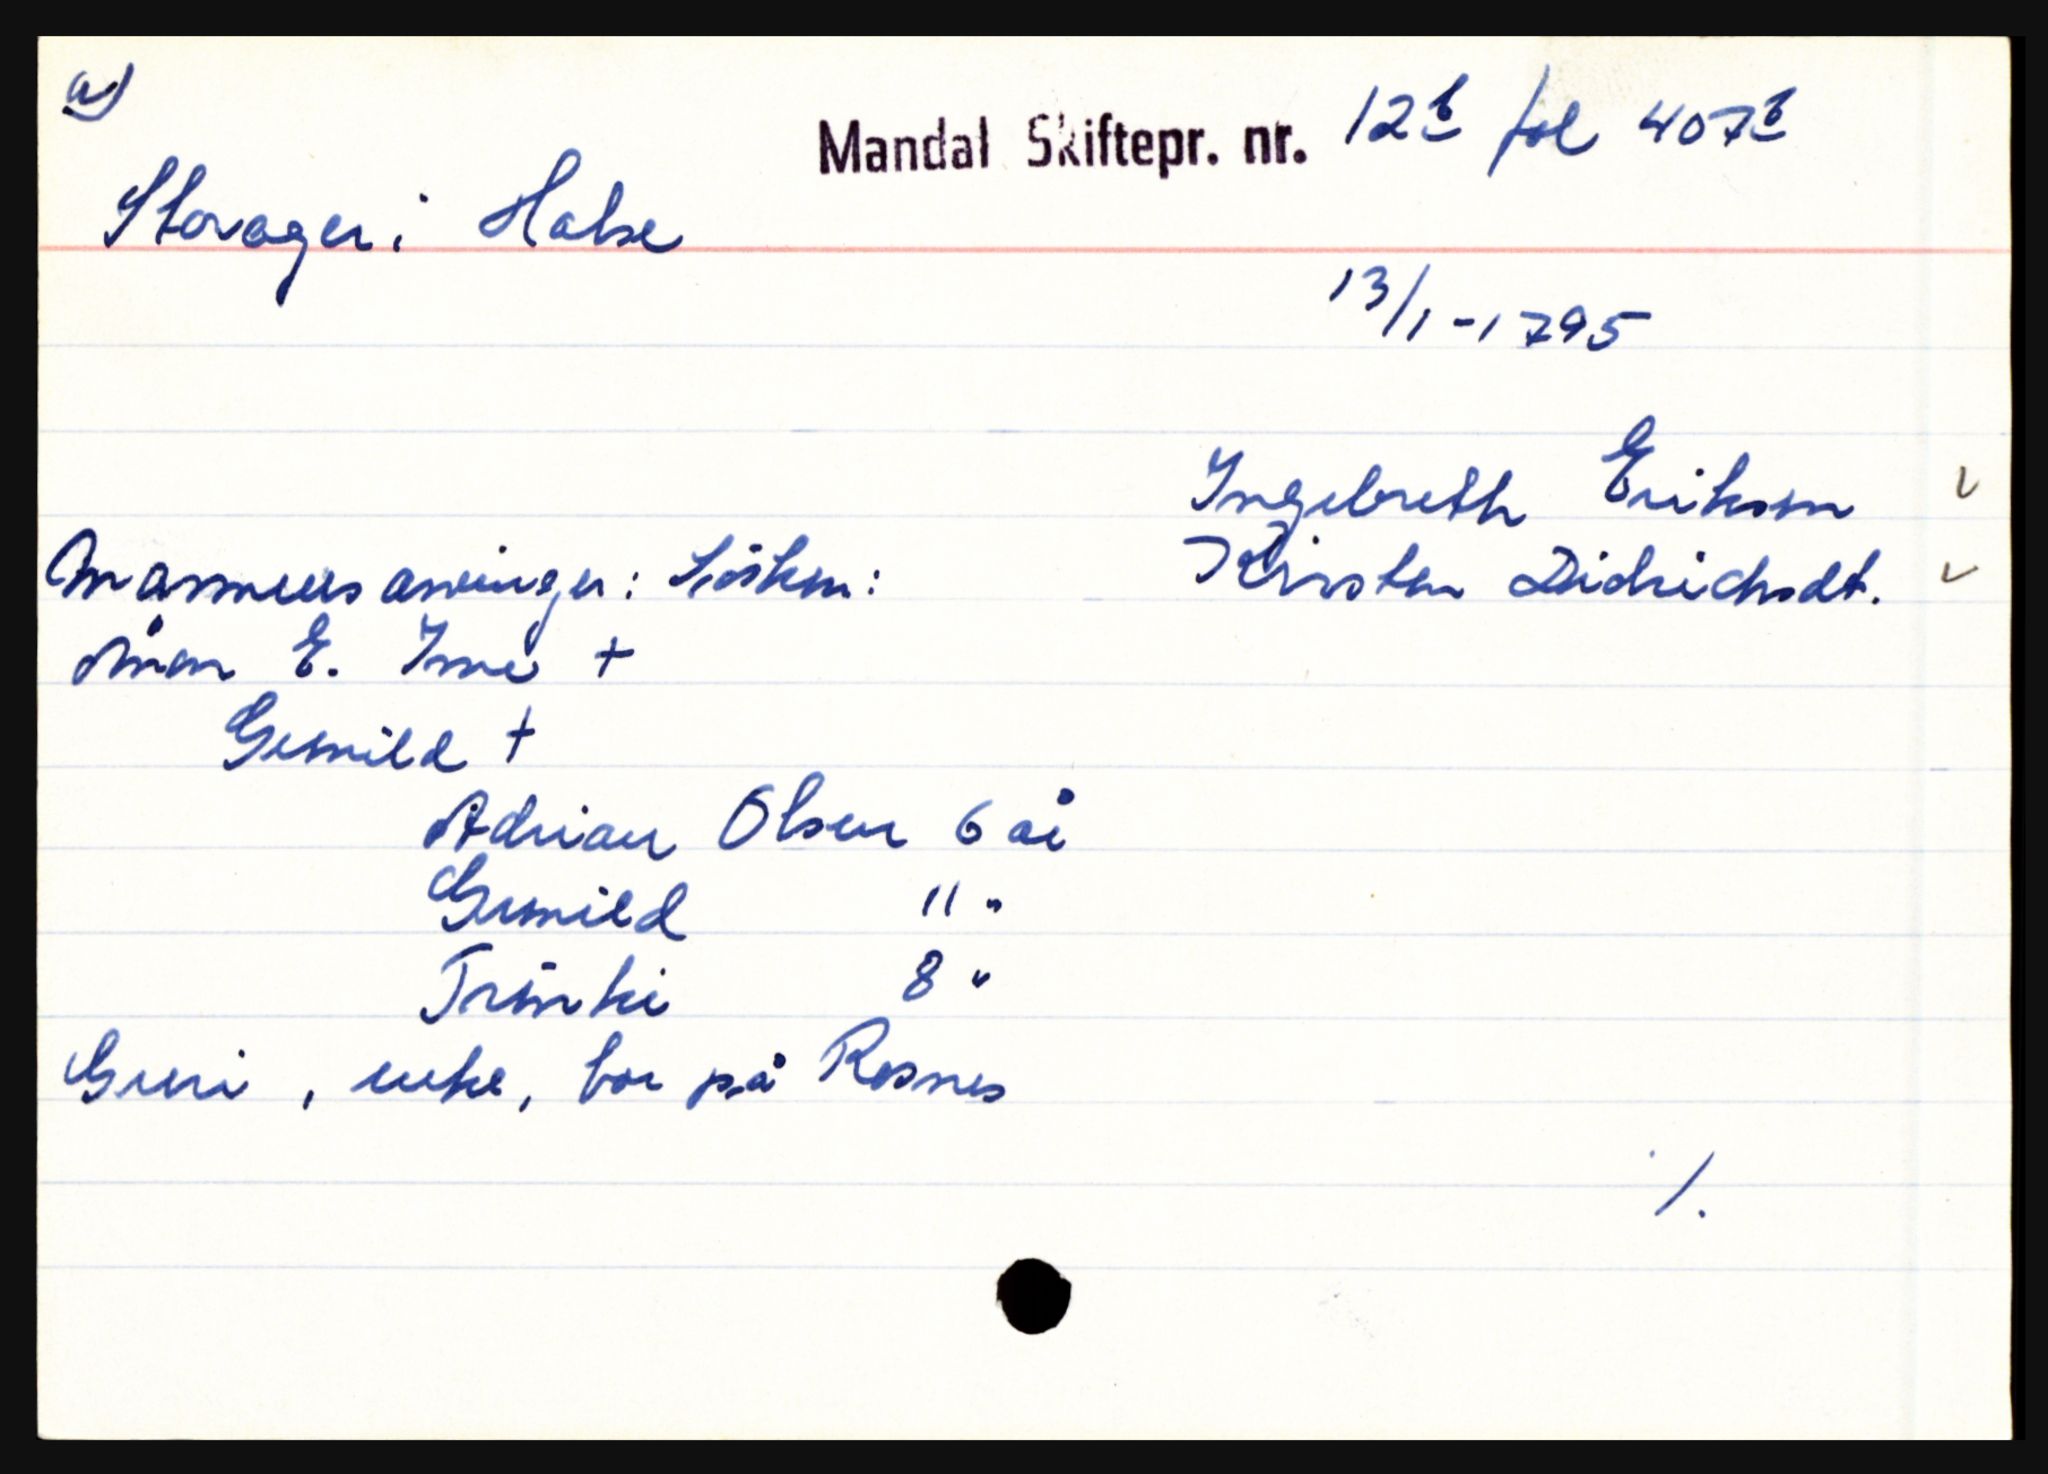 a)
Mandal Skiftepr. nr. 12b fol 407b
Storager i Halse
13/1-1795
Ingebreth Eriksen
Kirsten Didrichsdt.
Mannens arvinger: Søsken:
E. Ime +
Gunnild +
Adrian Olsen 6 år
Gunnild 11 "
Trinki 8 "
Guri, enke, bor på Rosnes
/.